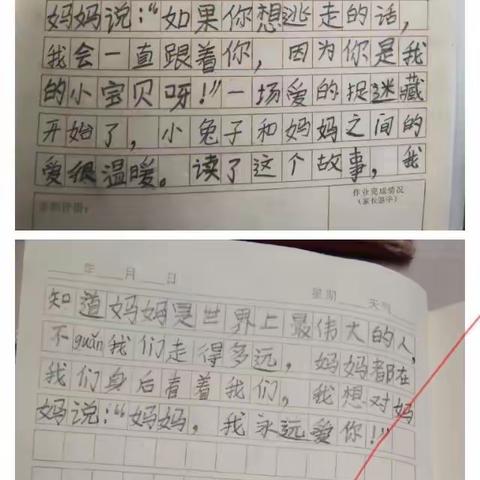 妈妈说："如果你想逃走的话，
我会一直跟着你，因为你是我
的小宝贝呀！"一场爱的捉迷藏
开始了，小兔子和妈妈之间的
爱很温暖。读了这个故事，我
作业完成情况
（家长签字）
年 月 日
星期 天气
知道妈妈是世界上最伟大的人，
不guǎn我们走得多远，妈妈都在
我们身后看着我们，我想对妈
妈说："妈妈，我永远爱你！"